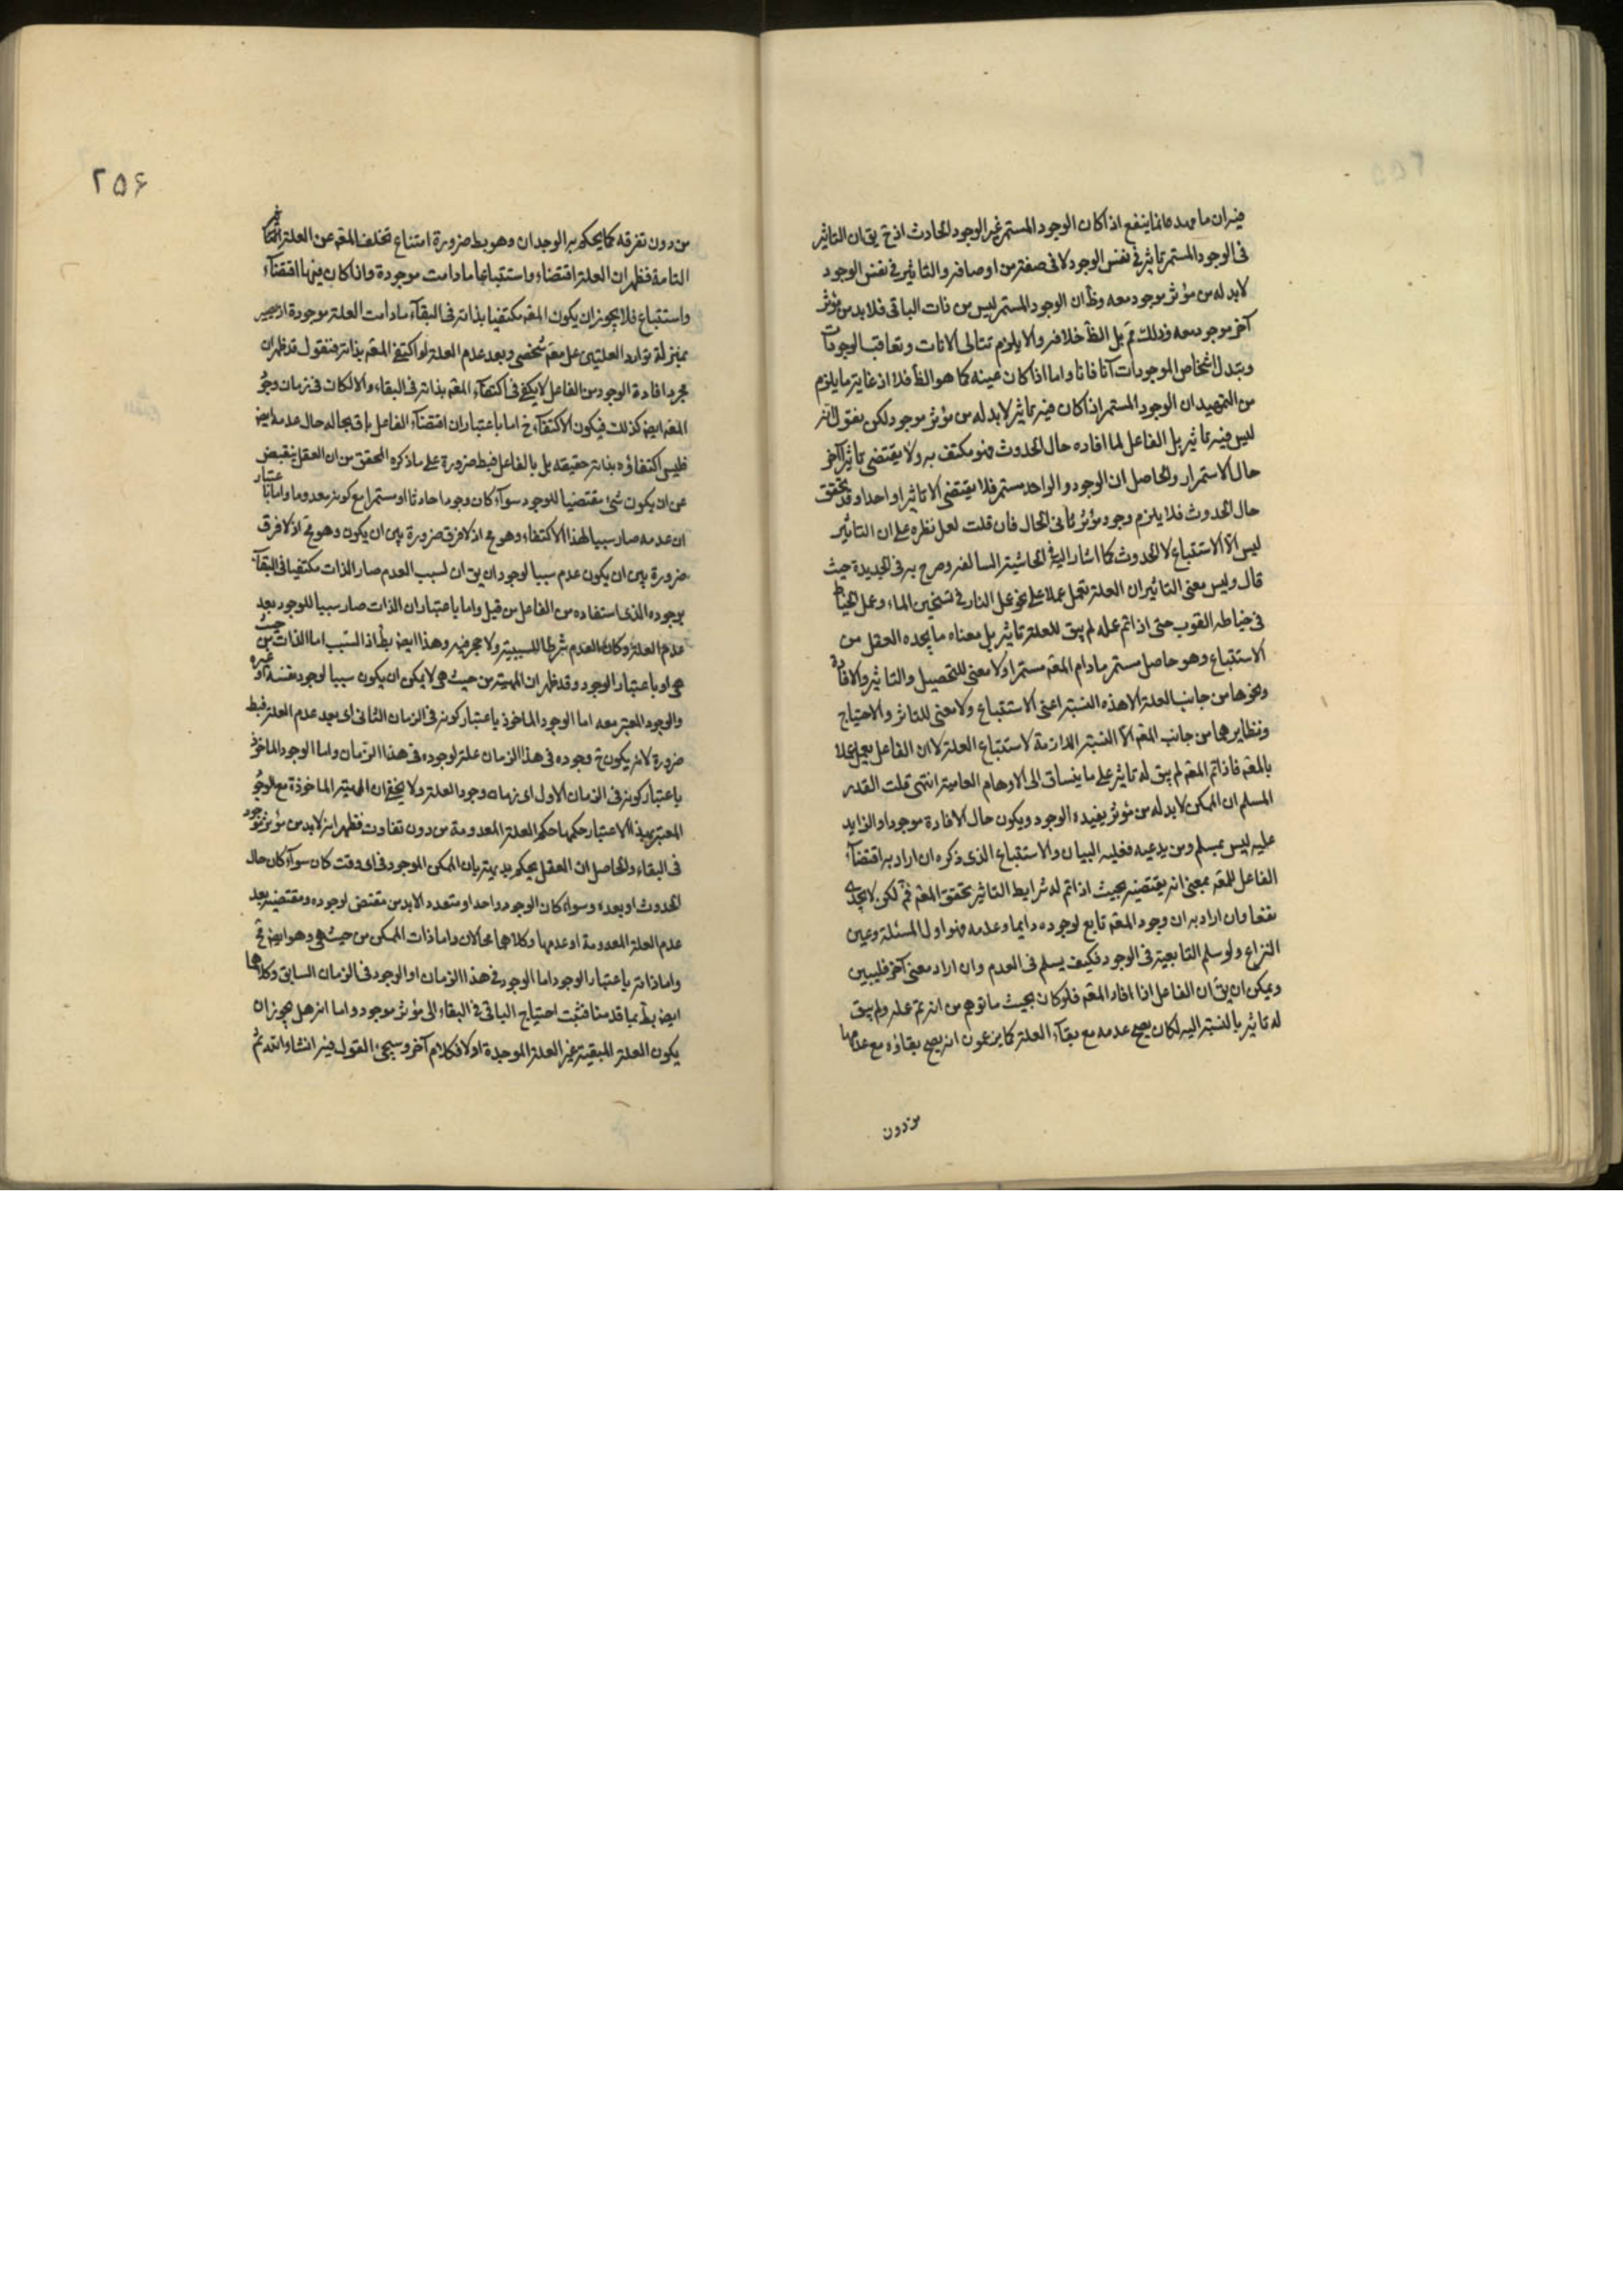 فيه ان ما مهده فانما ينفع اذا كان الوجود المستمر غير الوجود الحادث اذ ح يق ان التاثير
فى الوجود المستمر تاثير في نفس الوجود لا فى صفة من اوصافه والتاثير في نفس الوجود
لا بد له من مؤثر موجود معه وظ ان الوجود المستمر ليس من ذات الباقى فلا بد من مؤثر
آخر موجود معه وذلك مم بل الظ خلافه والا يلزم تتالى الانات وتعاقب الوجودات
وتبدل اشخاص الموجودات آنا فانا واما اذا كان عينه كما هو الظ فلا اذ غاية ما يلزم
من التمهيد ان الوجود المستمر اذا كان فيه تاثير لا بد له من مؤثر موجود لكن نقول انه
ليس فيه تاثير بل الفاعل لما افاده حال الحدوث فهو مكتف به ولا يقتضى تاثيرا آخر
حال الاستمرار والحاصل ان الوجود الواحد مستمر فلا يقتضى الا تاثيرا واحدا وقد تحقق
حال الحدوث فلا يلزم وجود مؤثر ثانى الحال فان قلت لعل نظره على ان التاثير
ليس الا الاستتباع لا الحدوث كما اشار اليه في الحاشية السالفة وصرح به فى الجديدة حيث
قال وليس معنى التاثير ان العلة تعمل عملا على نحو عمل النار في تسخين الماء وعمل الخياط
فى خياطه الثوب حتى اذا تم عمله لم يبق للعلة تاثير بل معناه ما يجده العقل من
الاستتباع وهو حاصل مستمر مادام المعه مستمرا ولا معنى للتحصيل والتاثير والافادة
ونحوها من جانب العلة الا هذه النسبة اعنى الاستتباع ولا معنى للتاثر والاحتياج
ونظايرهما من جانب المعه الا النسبة اللازمة لاستتباع العلة لا ان الفاعل يعمل عملا
بالمعه فاذا تم المعه لم يبق له تاثير على ما ينساق الى الاوهام العامية انتهى قلت القدر
المسلم ان الممكن لا بد له من مؤثر يفيده الوجود ويكون حال الافادة موجودا والزايد
عليه ليس بمسلم ومن يدعيه فعليه البيان والاستتباع الذى ذكره ان اراد به اقتضاء
الفاعل للمعه بمعنى انه يقتضيه بحيث اذا تم له شرايط التاثير تحقق المعه فمم لكن لا يجدى
نفعا وان اراد به ان وجود المعه تابع لوجوده دايما وعدمه فهو اول المسئلة وعين
النزاع ولو سلم التابعية فى الوجود فكيف يسلم فى العدم وان اراد معنى آخر فليبين
ويمكن ان يق ان الفاعل اذا افاد المعه فلو كان بحيث ما توهم من انه تم عمله ولم يبق
له تاثير بالنسبة اليه لكان يصح عدمه مع بقاء العلة كما يزعمون انه يصح بقاؤه مع عدمها
من دون
٢٥۶
من دون تفرقه كما يحكم به الوجدان وهو بط ضرورة امتناع تخلف المعه عن العلة
التامة فظهر ان العلة اقتضاء واستتباعا ما دامت موجودة واذا كان فيها اقتضاء
واستتباع فلا يجوز ان يكون المعه مكتفيا بذاته فى البقاء ما دامت العلة موجودة اذ يصير
بمنزلة توارد العلتين على معه شخصى وبعد عدم العلة لو اكتفى المعه بذاته فنقول قد ظهر ان
مجرد افادة الوجود من الفاعل لا يكفى فى اكتفاء المعه بذاته فى البقاء والا لكان فى زمان وجود
المعه ايض كذلك فيكون الاكتفاء ح اما باعتبار ان اقتضاء الفاعل باق بحاله حال عدمه ايض
فليس اكتفاؤه بذاته حقيقه بل بالفاعل فبط ضرورة على ما ذكره المحقق من ان العقل ينقبض
عن ان يكون شئ مقتضيا للوجود سواء كان وجودا حادثا او مستمرا مع كونه معدوما واما باعتبار
ان عدمه صار سببا لهذا الاكتفاء وهو مح اذ لا فرق ضرورة بين ان يكون وهو مح اذ لا فرق
ضرورة بين ان يكون عدم سببا لوجود ان يق ان لسبب العدم صار الذات مكتفيا فى البقاء
بوجوده الذى استفاده من الفاعل من قبل واما باعتبار ان الذات صار سببا للوجود بعد
عدم العلة وكان العدم شرطا للسببية ولا حجر فيه وهذا ايض بط اذ السبب اما الذات من حيث
هى او باعتبار الوجود وقد ظهر ان المهية من حيث هى لا يمكن ان يكون سببا لوجود نفسه او غيره
والوجود المعتبر معه اما الوجود الماخوذ باعتبار كونه فى الزمان الثانى اى بعد عدم العلة فبط
ضرورة لانه يكون ح وجوده فى هذا الزمان علة لوجوده فى هذا الزمان واما الوجود الماخوذ
باعتبار كونه فى الزمان الاول اى زمان وجود العلة ولا يخفى ان المهية الماخوذة مع الوجود
المعتبر بهذا الاعتبار حكمها حكم العلة المعدومة من دون تفاوت فظهر انه لا بد من مؤثر موجود
فى البقاء والحاصل ان العقل يحكم بديهة بان الممكن الموجود فى اى وقت كان سواء كان حال
الحدوث او بعده وسواء كان الوجود واحدا او متعددا لا بد من مقتض لوجوده ومقتضيه بعد
عدم العلة المعدومة او عدمها وكلاهما محالان واما ذات الممكن من حيث هى وهو ايض مح
واما ذاته باعتبار الوجود اما الوجود في هذا الزمان او الوجود فى الزمان السابق وكلاهما
ايض بط بما قدمنا فثبت احتياج الباقى فى البقاء الى مؤثر موجود واما انه هل يجوز ان
يكون العلة المبقية غير العلة الموجدة او لا فكلام آخر وسيجئ القول فيه انشاء الله تع ثم